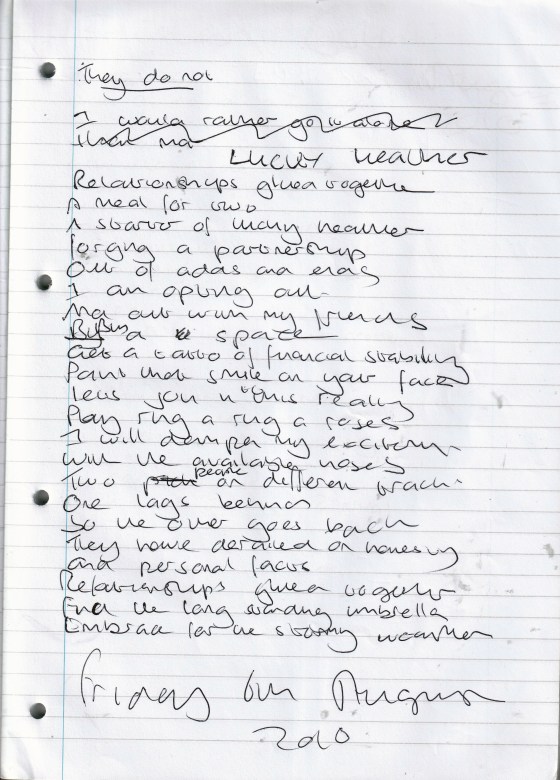 They do not
I would rather go it alone
that
Lucky heather
Relationships glued together
A meal for two
A starter of lucky heather
forging a partnership
Out of odds and ends
I am opting out
out with my friends
a space
Get a tattoo of financial stability
Paint that smile on your face
lets you in this really
Play ring a ring a roses
I will dampen my
With the available noses
Two people on different
One lags behind
So the other goes back
They have derailed on honesty
and personal facts
Relationships glued together
Find the long standing umbrella
Embrace for the stormy weather
Friday 6th August
2010